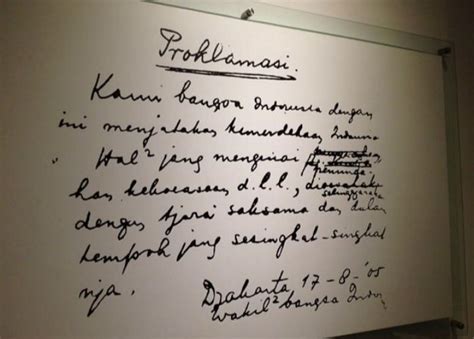 Proklamasi.
Kami bangsa Indonesia dengan
ini menjatakan kemerdekaan Indonesia
Hal² jang mengenai peminda-
han kekoeasaan d.l.l., diselenggarakan
dengan tjara saksama dan dalam
tempoh jang sesingkat-singkat
nja.
Djakarta 17-8-'05
Wakil² bangsa Indon